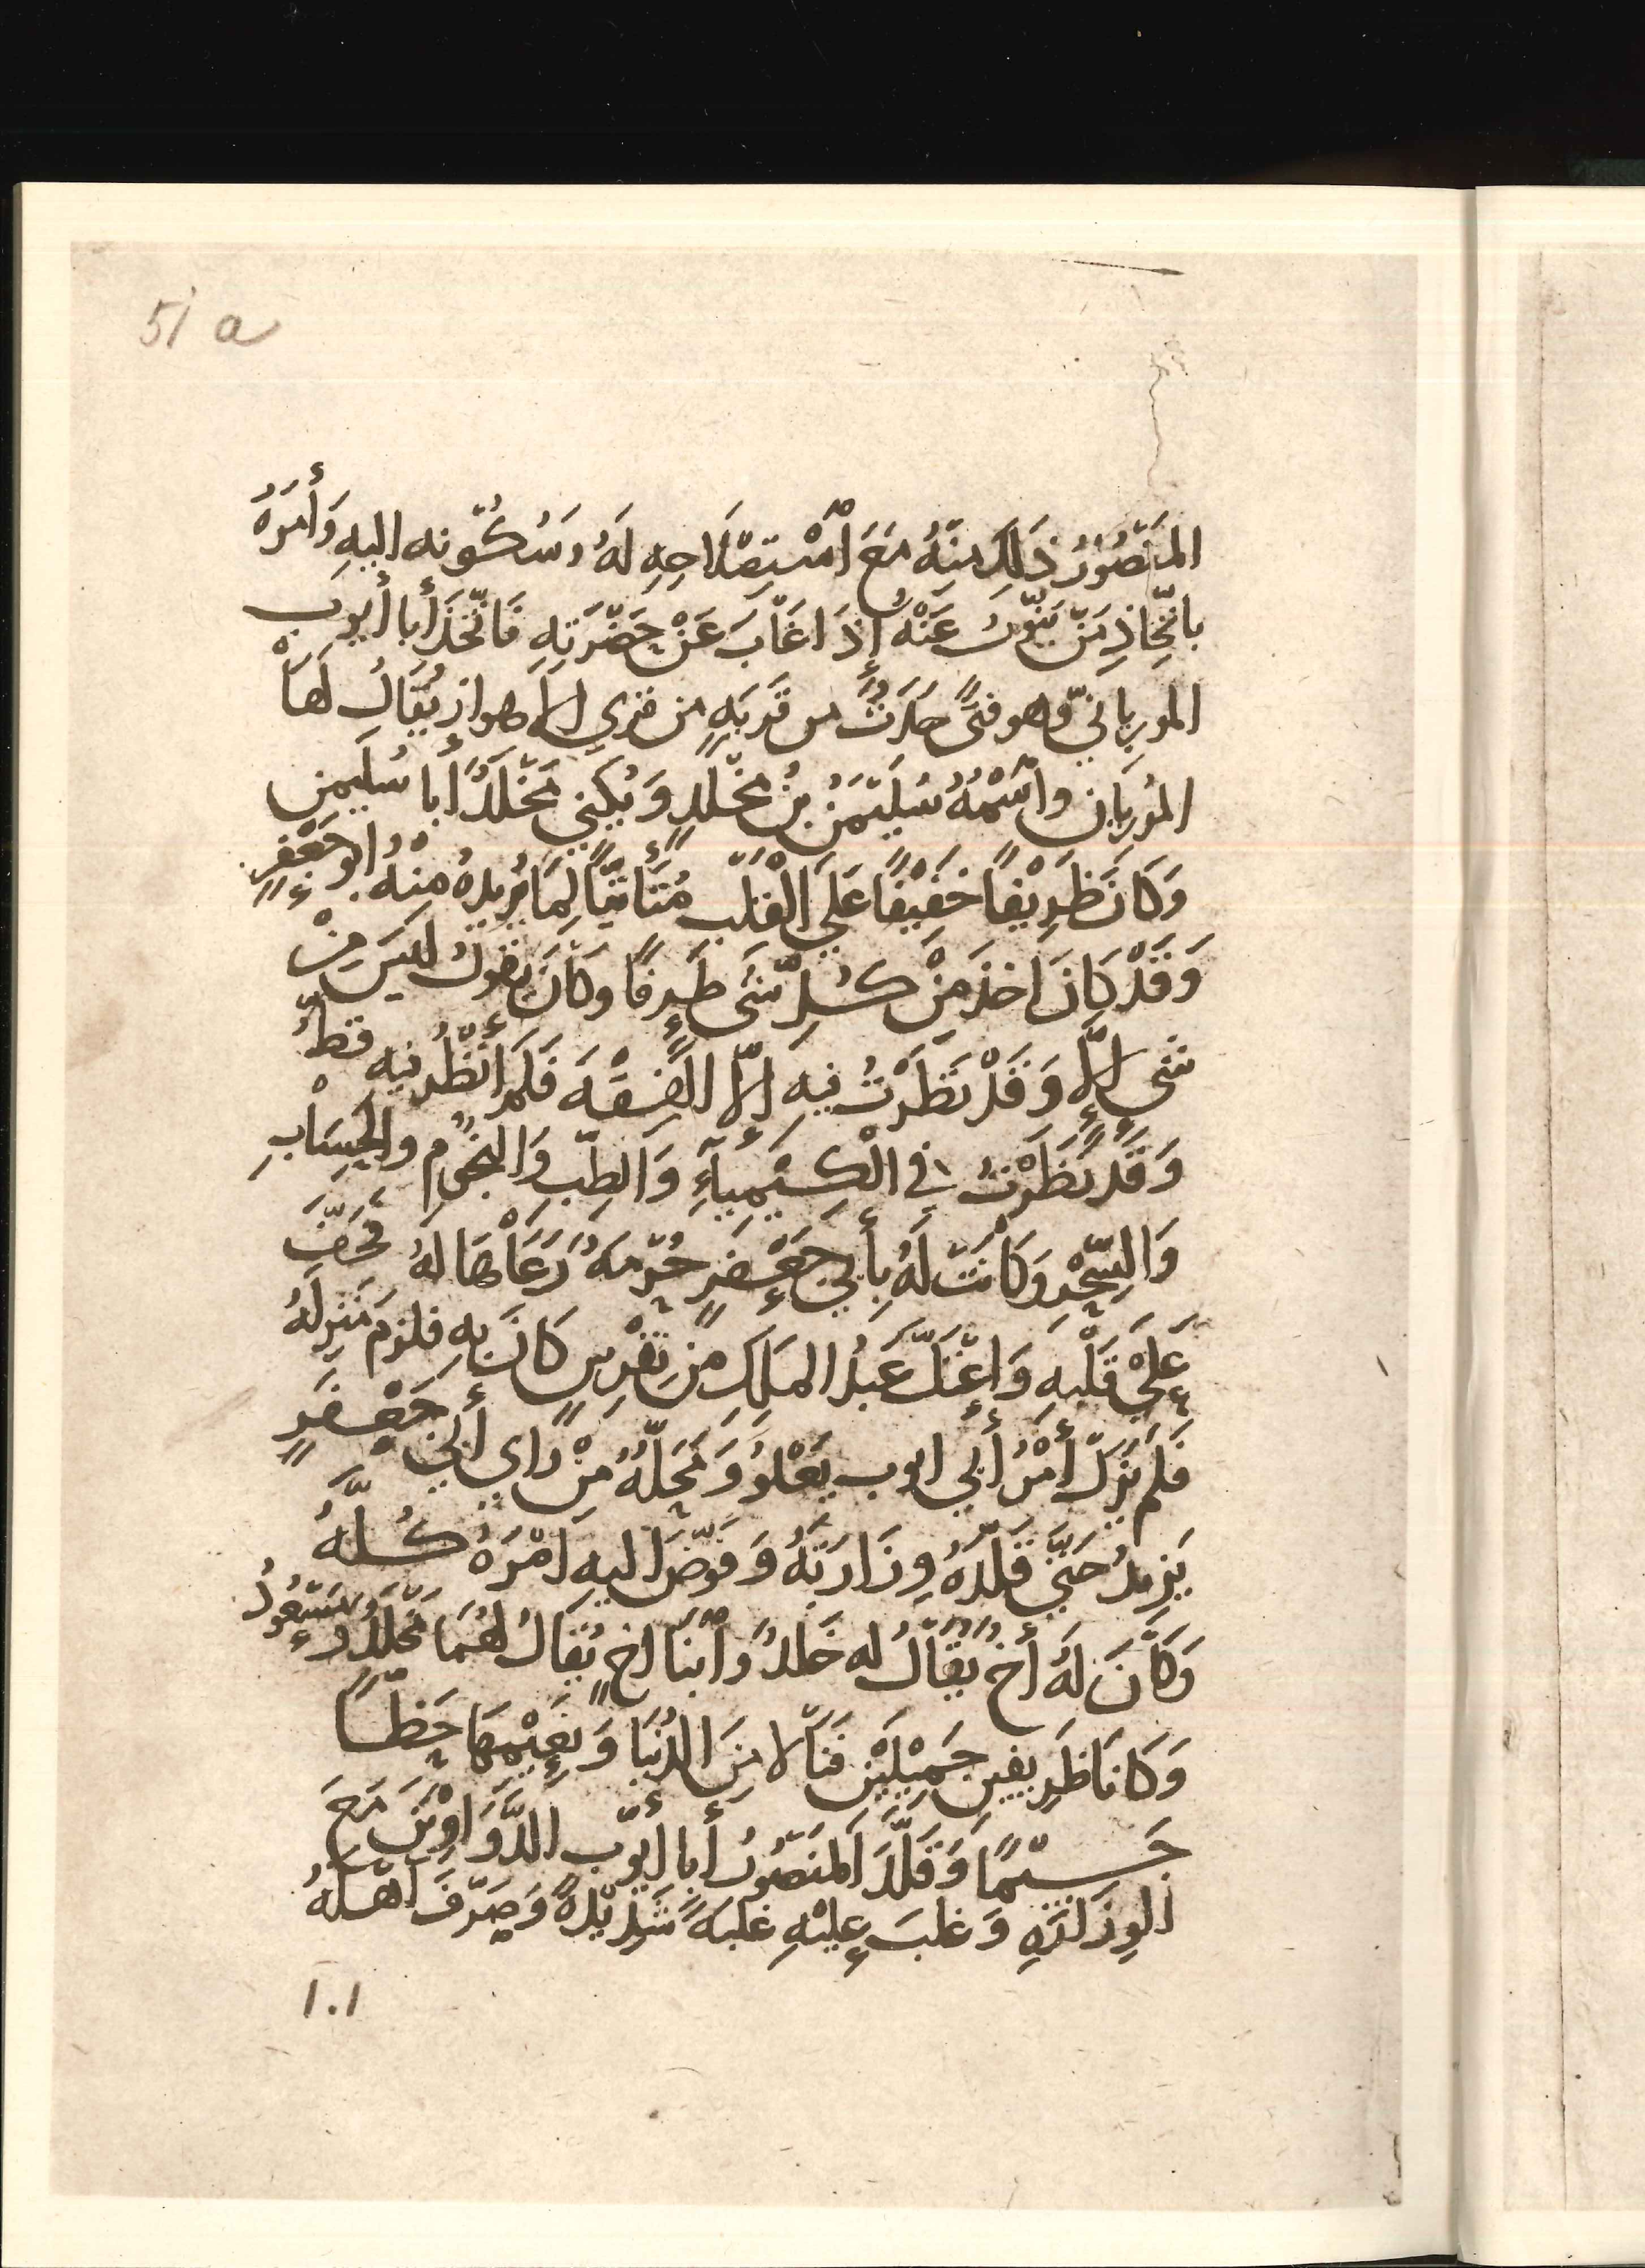 51 a
المَنْصُوُرُ ذَلِكَ مِنْهُ مَعَ اسْتِصْلَاحِهِ لَهُ وَسُكُونِه اليهِ وَأَمَرَهُ
باتّخِاذِ مَنْ يَنُوبُ عَنْهُ إِذَا غَابَ عَنْ حَضْرَتِهِ فَاتّخَذَ أَبا أَيوب
المورِيانيّ وهو فتًى حَدَثٌ من قَريَةٍ من قري الأهواز يُقَالُ لَهَا
المُورِيان واسْمُهُ سُلَيْمَنُ بنُ مَخْلَدٍ وَيُكني مَخْلَدٌ أَبا سُليمن
وَكَانَ ظَرِيْفاً خَفِيْفًا عَلَي الْقَلْبِ مُتَأَتِّيًا لِمَا يُرِيدهُ مِنهُ ابو جَعْفرٍ
وَقَدْ كَانَ اخذَ مِنْ كُلِّ شَىءٍ طَرفًا وكَانَ يقولُ ليسَ مِنْ
شَىءٍ إِلَّا وَقَدْ نَظَرْتُ فيه إِلّا الفِقْهَ فَلَم أَنْظُر فيه قطُّ
وَقَد نَظَرْتُ في الْكِيْمِيَآءِ وَالطِبّ وَالنجُومِ والحِسَابِ
وَالسِّحْرِ وَكَانَتْ لَهُ بِأَبي جَعْفَرٍ حُرْمَةٌ رَعَاهَا لهُ فَخَفَّ
عَلَي قَلْبِهِ وَاعْتَلَّ عَبْدُ المَلِكِ مِن نِقْرِسٍ كَانَ بِهِ فلزمَ مَنزِلَهُ
فَلَم يَزلْ أَمْرُ أَبي ايوب يَعْلُو وَمَحَلّهُ مِنْ راي أَبي جَعْفَرٍ
يَزِيدُ حَتَّي قَلّدَهُ وِزَارَتَهُ وَفَوّضَ اليهِ امْرَهُ كُلَّهُ
وَكَانَ لَهُ أَخٌ يُقَالُ له خَلدٌ وَابْنَا اخٍ يُقَالُ لهُمَا مَخْلَدٌ وَمَسْعُودُ
وَكَانَا ظَرِيفين جَمِيْلَيْنِ فَنَالا مِنَ الدُنيَا وَنَعِيْمِهَا حَظّاً
جَسِيْمًا وَقَلّدَ المَنصُورُ أَبا أَيوّبَ الدَّوَاوِيْنَ مَعَ
الوِزَارَةِ وَغلبَ عليْهِ غلبةً شَدِيْدةً وَصَرّفَ أَهْلَهُ
١٠١